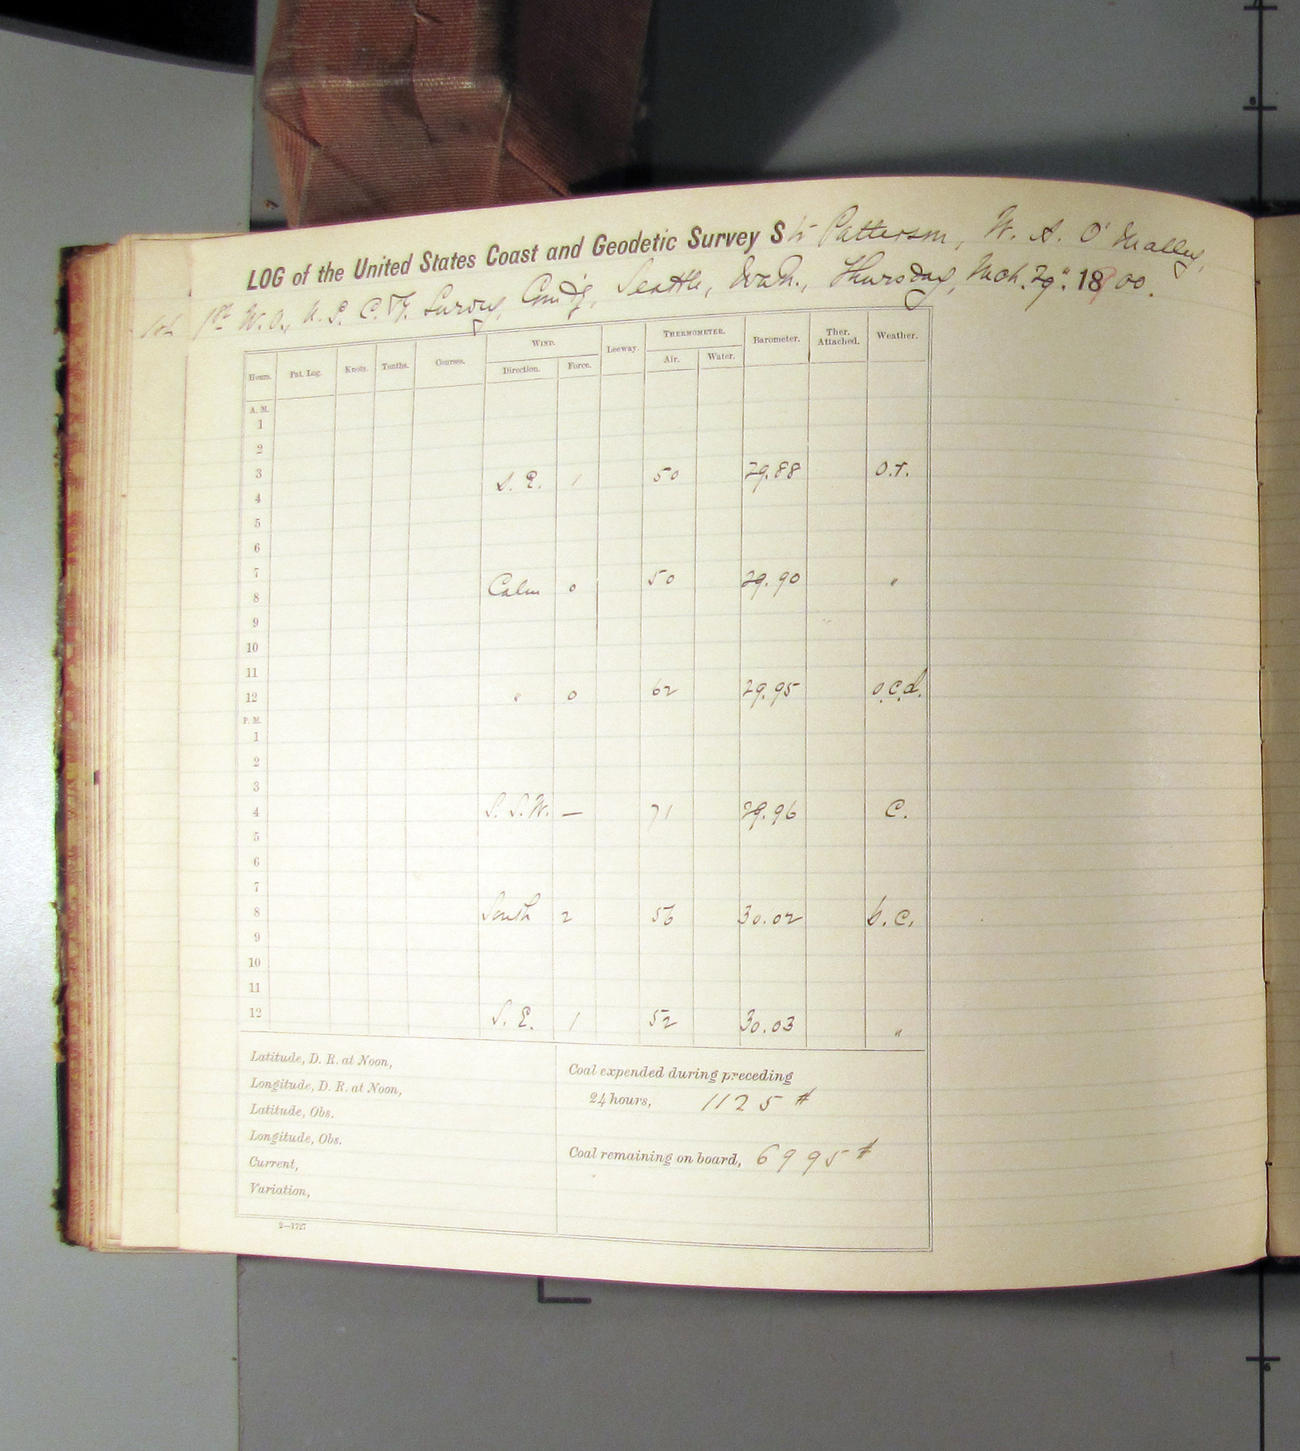 LOG of the United States Coast and Geodetic Survey Str Patterson, W. A. O'Malley,
1st W.O., U.S. C. & G. Survey, Com'd'g, Seattle, Wash., Thursday, Mch. 29" 1900.
Hours. Pat. Log. Knots. Tenths. Courses. WIND. Leeway. THERMOMETER. Barometer. Ther. Attached. Weather.
Direction. Force. Air. Water.
A. M.
1
2
3 S. E. 1 50 29.88 o.r.
4
5
6
7 Calm 0 50 29.90 "
8
9
10
11
12 " 0 62 29.95 o.c.d.
P. M.
1
2
3
4 S. S. W. — 71 29.96 C.
5
6
7
8 South 2 56 30.02 b. c.
9
10
11
12 S. E. 1 52 30.03 "
Latitude, D. R. at Noon,
Longitude, D. R. at Noon,
Latitude, Obs.
Longitude, Obs.
Current,
Variation,
Coal expended during preceding
24 hours, 1125 #
Coal remaining on board, 6995 #
2—1727